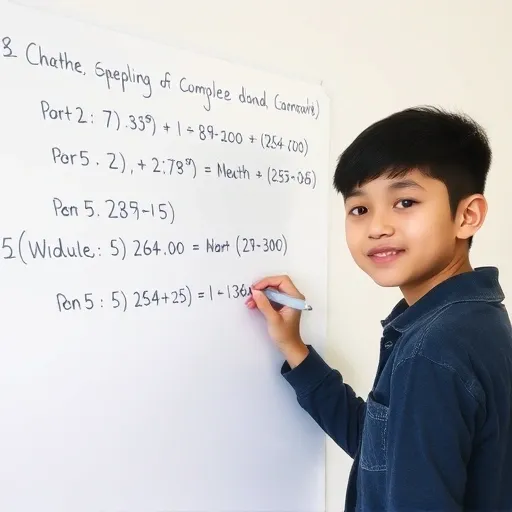 8 Chathe, Spepling of Complee dond, Carnrowite)
Port 2: 7) .33⁹) + 1 ÷ 89-200 + (254.600)
Por 5. 2), + 2:73⁹) = Meath + (255-05)
Pon 5. 289-15)
5(Widule: 5) 264.00 = Nart (27-300)
Pon 5: 5) 254+25) = 1 - 136